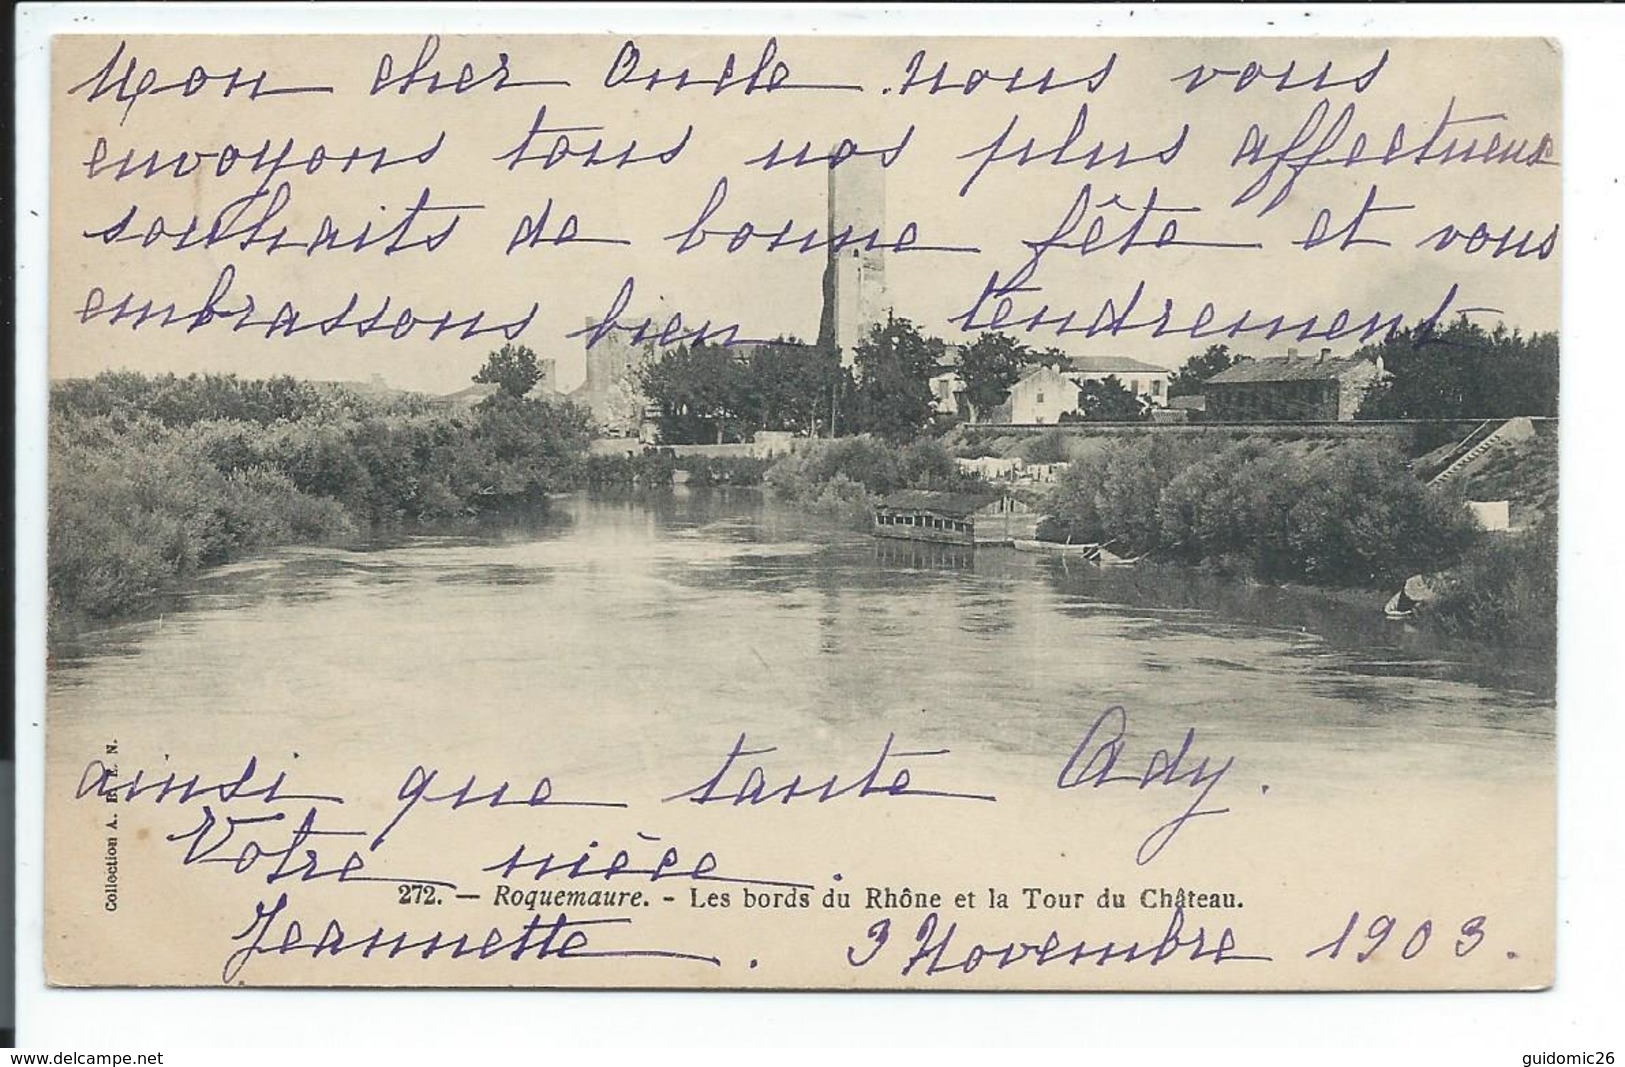 Mon cher Oncle nous vous
envoyons tous nos plus affectueux
souhaits de bonne fête et vous
embrassons bien tendrement
ainsi que tante Ady.
Votre nièce.
272. — Roquemaure. - Les bords du Rhône et la Tour du Château.
Jeannette. 3 Novembre 1903.
Collection A. E. N.
www.delcampe.net
guidomic26